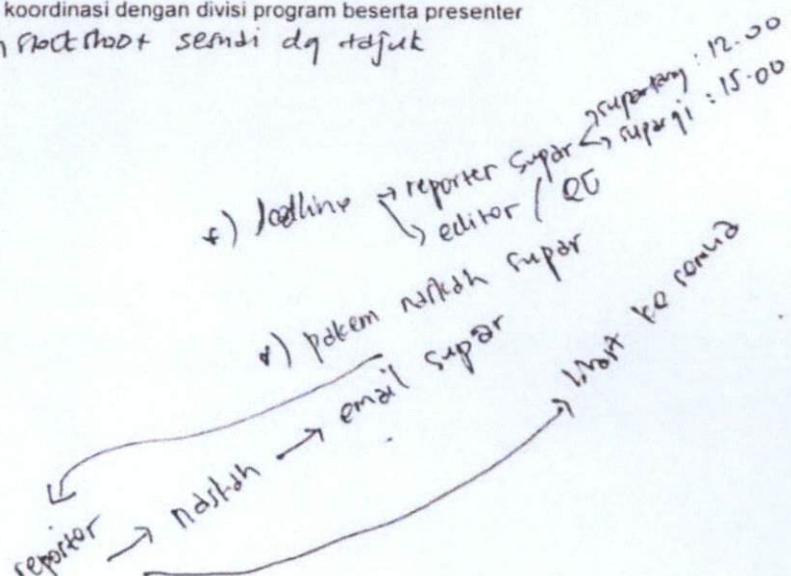 koordinasi dengan divisi program beserta presenter
sesuai dg tajuk
*) deadline → reporter supar → supartang : 12.00
→ suparji : 15.00
→ editor /
*) pakem naskah supar
reporter → naskah → email supar
→ ke semua